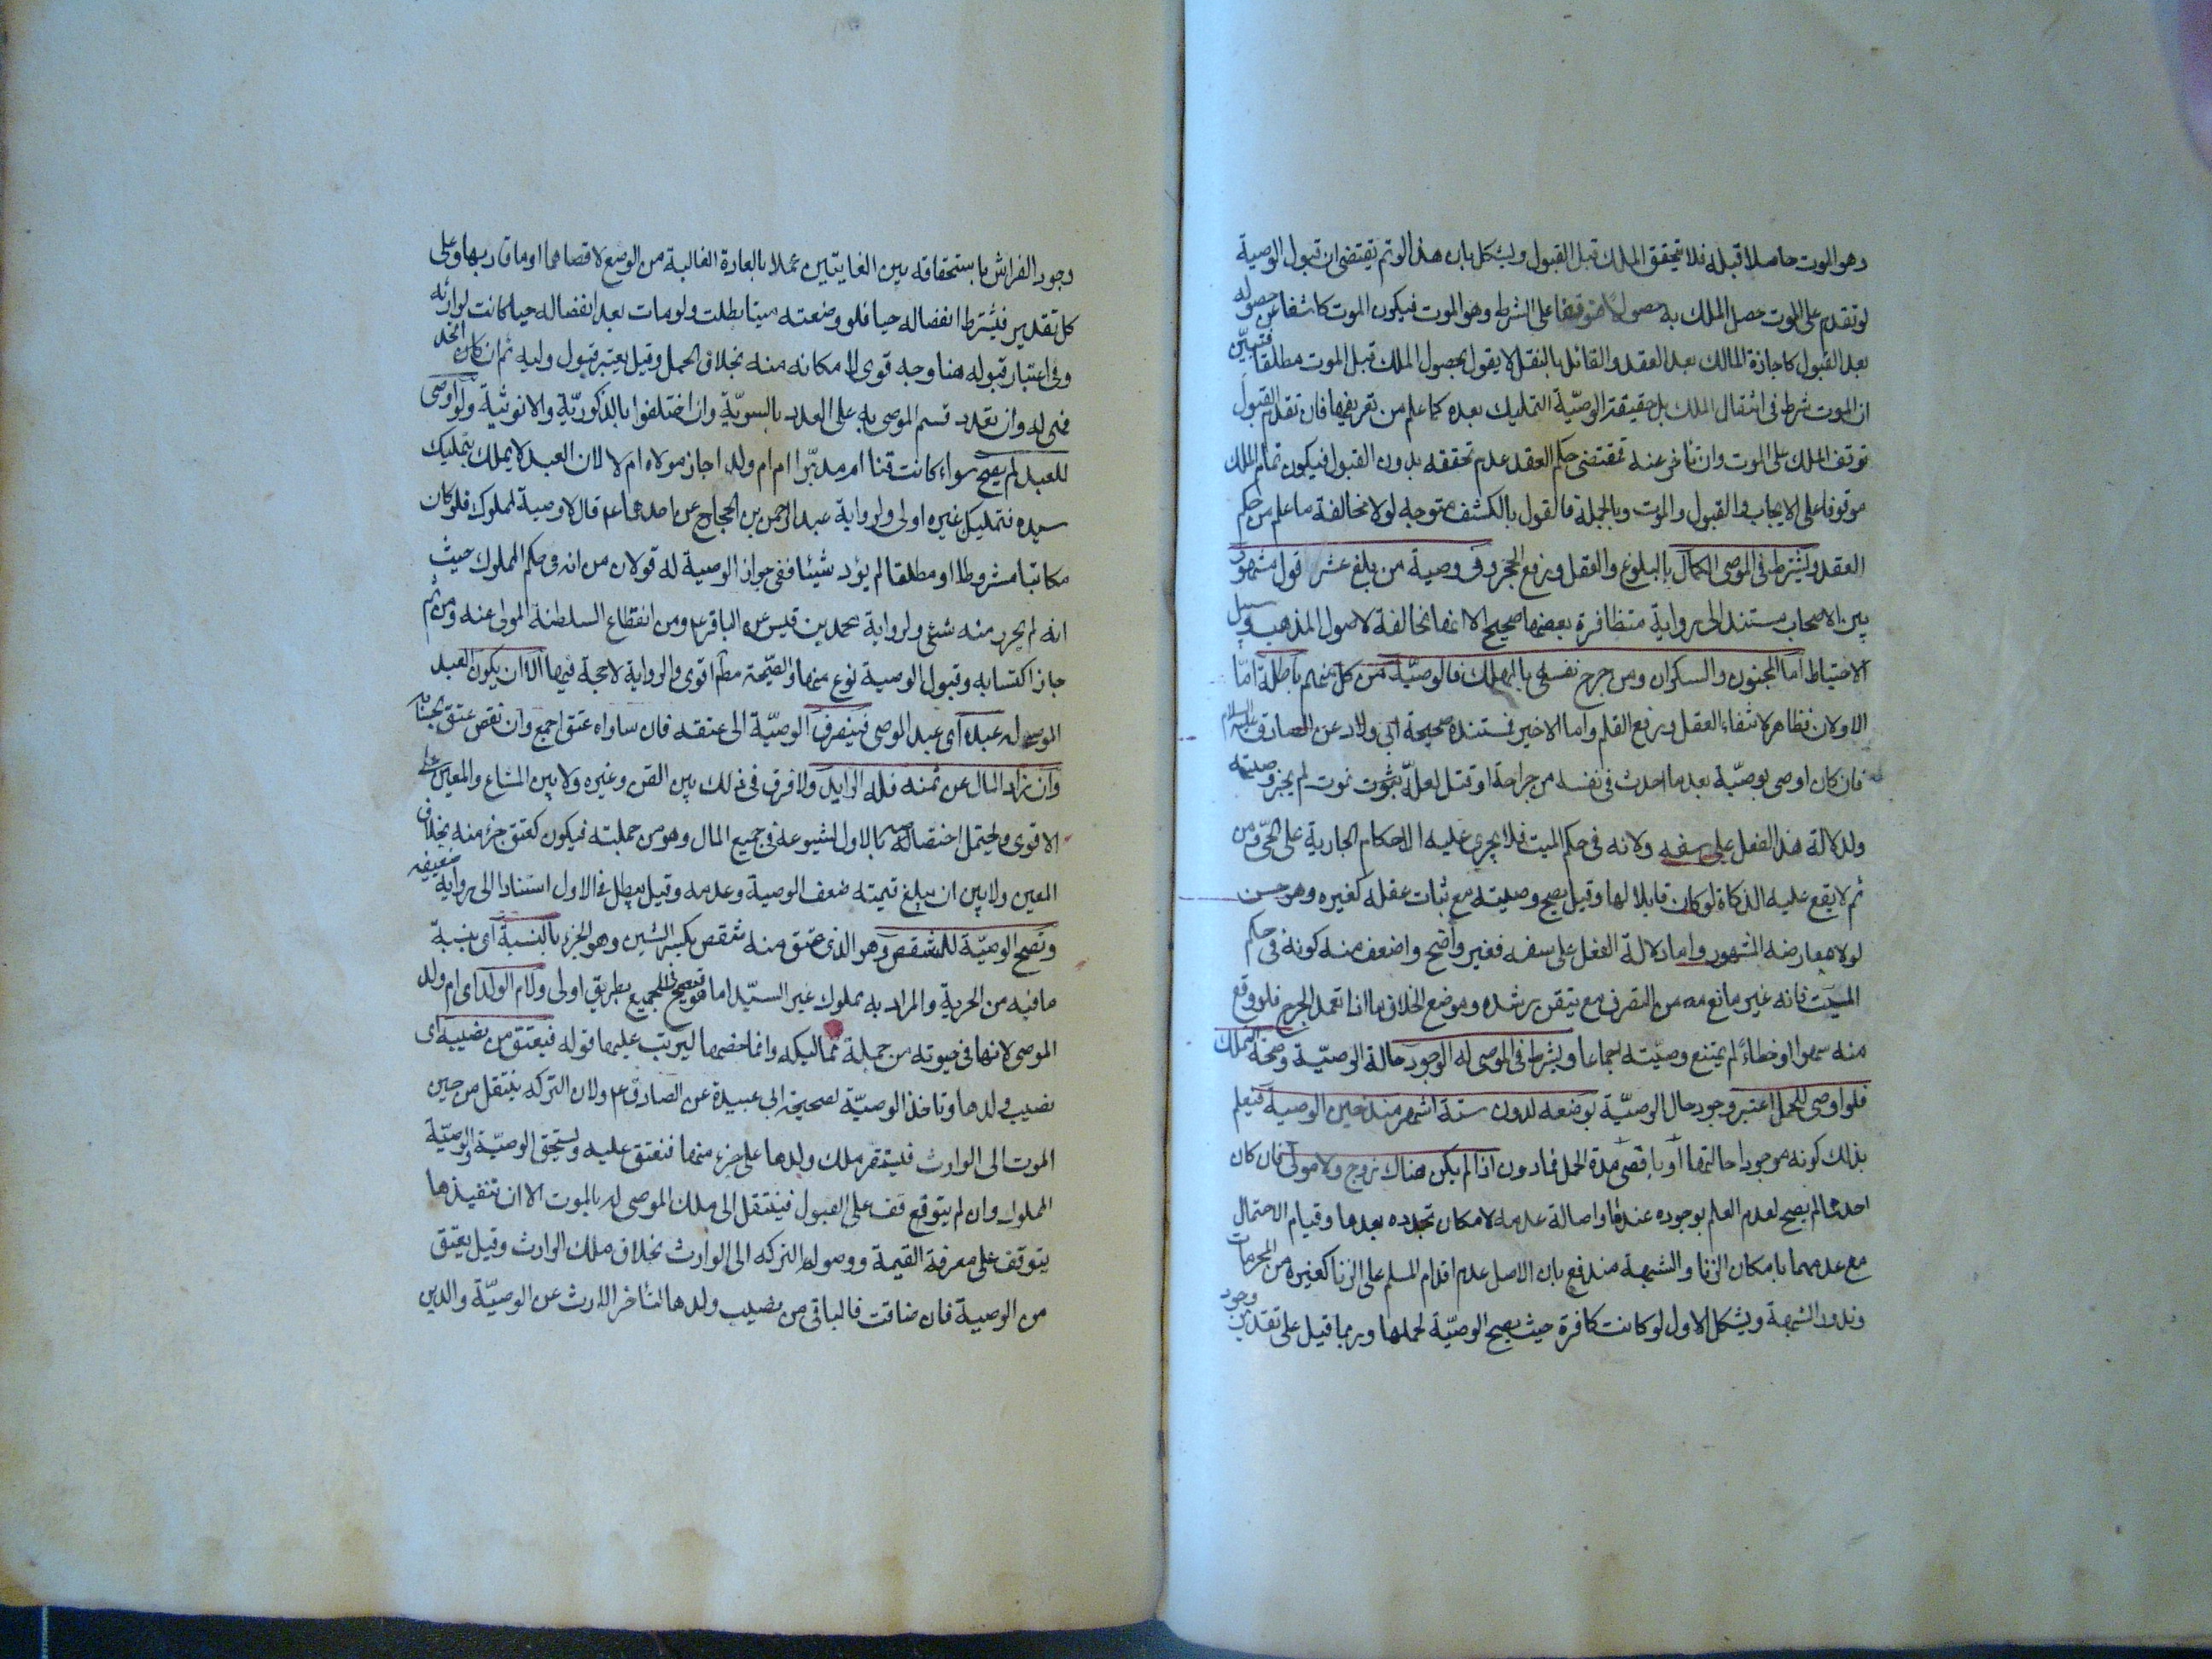 وهو الموت حاصلا قبله فلا يتحقق الملك قبل القبول ويشكل بان هذا لو تم يقتضى ان قبول الوصية
لو تقدم على الموت حصل الملك به حصولا متوقفا على الشرط وهو الموت فيكون الموت كاشفا عن حصوله
بعد القبول كاجازة المالك بعد العقد والقائل بالنقل لا يقول بحصول الملك قبل الموت مطلقا فتبيّن
ان الموت شرط فى انتقال الملك بل حقيقة الوصيّة التمليك بعده كما علم من تعريفها فان تقدم القبول
توقف الملك على الموت وان تأخر عنه فمقتضى حكم العقد عدم تحققه بدون القبول فيكون تمام الملك
موقوفا على الايجاب والقبول والموت وبالجملة فالقول بالكشف متوجه لولا مخالفة ما علم من حكم
العقد ويشترط فى الموصى الكمال بالبلوغ والعقل ورفع الحجر وفى وصية من بلغ عشرا قول مشهور
بين الاصحاب مستندا الى رواية متظافرة بعضها صحيح الا انها مخالفة لاصول المذهب وسبيل
الاحتياط اما المجنون والسكران ومن جرح نفسه بالمهلك فالوصيّة من كل منهم باطلة امّا
الاولان فظاهر لانتفاء العقل ورفع القلم واما الاخير فمستنده صحيحة ابى ولاد عن الصادق عليه السلام
فان كان اوصى بوصيّة بعد ما احدث فى نفسه من جراحة او قتل لعلّه يموت لم يجز وصيته
ولدلالة هذا الفعل على سفهه ولانه فى حكم الميت فلا يجرى عليه الاحكام الجارية على الحىّ ومن
ثم لا يقع عليه الذكاة لو كان قابلا لها وقيل يصح وصيته مع ثبات عقله كغيره وهو حسن
لولا معارضة المشهور واما دلالة الفعل على سفه فغير واضح واضعف منه كونه فى حكم
الميّت فانه غير مانع من التصرف مع تيقن رشده وموضع الخلاف ما اذا تعمد الجرح فلو وقع
منه سهوا او خطاءً لم يمتنع وصيّته اجماعا ويشترط فى الموصى له الوجود حالة الوصيّة وصحة التملك
فلو اوصى للحمل اعتبر وجوده حال الوصيّة بوضعه لدون ستة اشهر منذ حين الوصية فيعلم
بذلك كونه موجودا حالتها أو باقصى مدة الحمل فما دون اذا لم يكن هناك زوج ولا مولى فان كان
احدهما لم يصح لعدم العلم بوجوده عندها واصالة عدمه لامكان تجدده بعدها وقيام الاحتمال
مع عدمهما بامكان الزنا والشبهة مندفع بان الاصل عدم اقدام المسلم على الزنا كغيره من المحرمات
وندور الشبهة ويشكل الاول لو كانت كافرة حيث يصح الوصيّة لحملها وربما قيل على تقدير وجود
وجود الفراش باستحقاقه بين الغايتين عملا بالعادة الغالبة من الوضع لاقصاهما او ما قاربها وعلى
كل تقدير فيشترط انفصاله حيا فلو وضعته ميتا بطلت ولو مات بعد انفصاله حيا كانت لوارثه
وفى اعتبار قبوله هنا وجه قوى لامكانه منه بخلاف الحمل وقيل يعتبر قبول وليه ثم ان اتحد
فهى له وان تعدد قسم الموصى به على العدد بالسويّة وان اختلفوا بالذكوريّة والانوثية ولو اوصى
للعبد لم يصح سواء كانت قنا ام مدبّرا ام ام ولد اجاز مولاه ام لا لان العبد لا يملك بتمليك
سيده فتمليك غيره اولى ولرواية عبد الرحمن بن الحجاج عن احدهما ع قال لا وصية لمملوك فلو كان
مكاتبا مشروطا او مطلقا لم يؤد شيئا ففى جواز الوصية له قولان من انه فى حكم المملوك حيث
انه لم يحرر منه شئ ولرواية محمد بن قيس عن الباقر ع ومن انقطاع السلطنة المولى عنه ومن ثم
جاز اكتسابه وقبول الوصية نوع منها والصّحة مطم اقوى والرواية لا حجة فيها الا ان يكون العبد
الموصى له عبده اى عبد الموصى فينصرف الوصيّة الى عتقه فان ساواه عتق اجمع وان نقص عتق بحسابه
وان زاد المال عن ثمنه فله الزايد ولا فرق فى ذلك بين القن وغيره ولا بين المشاع والمعين على
الاقوى ويحتمل اختصاصه بالاول لشيوعه فى جميع المال وهو من جملته فيكون كعتق جزء منه بخلاف
المعين ولا بين ان يبلغ قيمته ضعف الوصية وعدمه وقيل يبطل فى الاول استنادا الى رواية ضعيفة
وتصح الوصيّة للمشقص وهو الذى عتق منه شقص بكسر الشين وهو الجزء بالنسبة اى بنسبة
ما فيه من الحرية والمراد به مملوك غير السيّد اما هو فتصح للجميع بطريق اولى ولام الولد اى ام ولد
الموصى لانها فى حيوته من جملة مماليكه وانما خصها ليرتب عليها قوله فيعتق من نصيبه اى
نصيب ولدها وتاخذ الوصيّة لصحيحة ابى عبيدة عن الصادق ع ولان التركه ينتقل من حين
الموت الى الوارث فليستقر ملك ولدها على جزء منها فتعتق عليه وتستحق الوصيّة والوصيّة
المملوك وان لم يتوقف على القبول فينتقل الى ملك الموصى له بالموت الا ان تنفيذها
يتوقف على معرفة القيمة ووصول التركه الى الوارث بخلاف ملك الوارث وقيل يعتق
من الوصية فان ضاقت فالباقى من نصيب ولدها لتأخر الارث عن الوصيّة والدين